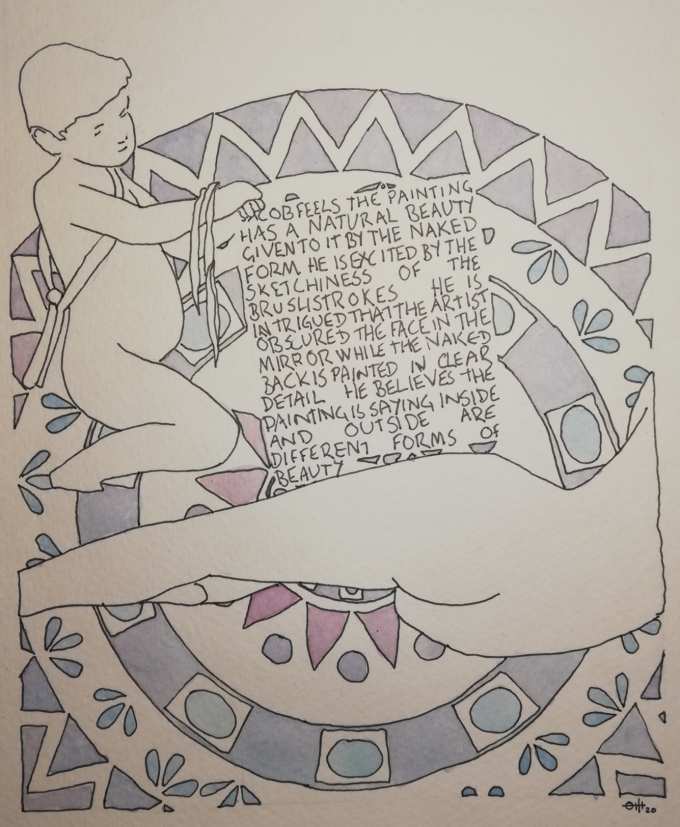 JACOB FEELS THE PAINTING
HAS A NATURAL BEAUTY
GIVEN TO IT BY THE NAKED
FORM. HE IS EXCITED BY THE
SKETCHINESS OF THE
BRUSLISTROKES HE IS
INTRIGUED THAT THE ARTIST
OBSCURED THE FACE IN THE
MIRROR WHILE THE NAKED
BACK IS PAINTED IN CLEAR
DETAIL HE BELIEVES THE
PAINTING IS SAYING INSIDE
AND OUTSIDE ARE
DIFFERENT FORMS OF
BEAUTY
20